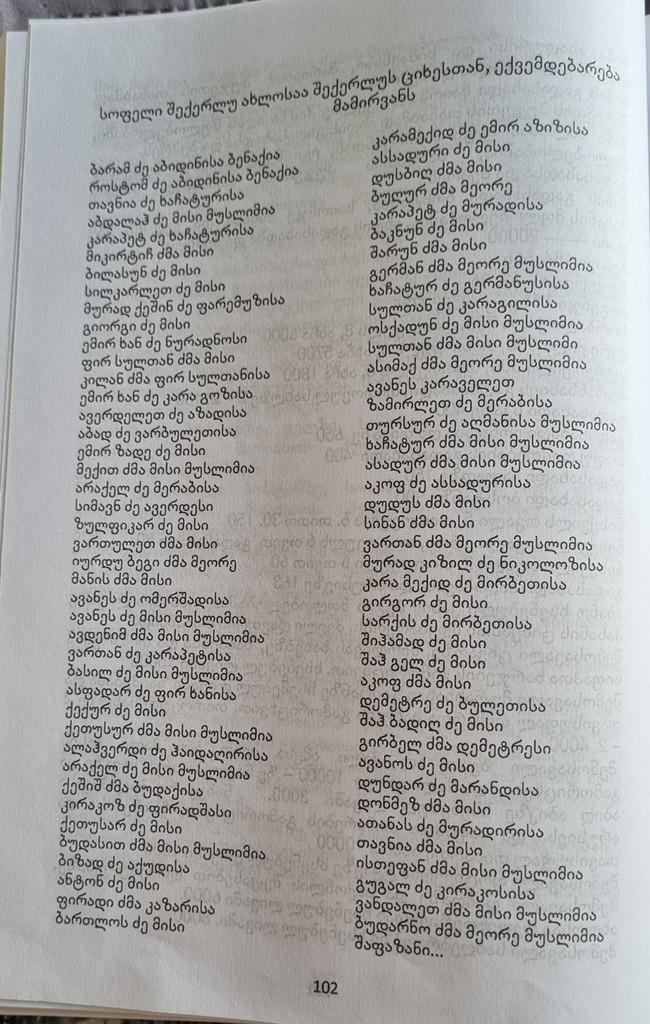 სოფელი შექერლუ ახლოსაა შექერლუს ციხესთან, ექვემდებარება
მამირვანს
ბარამ ძე აბიდინისა ბენაქია
როსტომ ძე აბიდინისა ბენაქია
თავნია ძე ხაჩატურისა
აბდალაჰ ძე მისი მუსლიმია
კარაპეტ ძე ხაჩატურისა
მიკირტიჩ ძმა მისი
ბილასუნ ძე მისი
სილკარლეთ ძე მისი
მურად ქეშინ ძე ფარემუზისა
გიორგი ძე მისი
ემირ ხან ძე ნურადნოსი
ფირ სულთან ძმა მისი
კილან ძმა ფირ სულთანისა
ემირ ხან ძე კარა გოზისა
ავერდელეთ ძე აზადისა
აბად ძე ვარბულეთისა
ემირ ზადე ძე მისი
მექით ძმა მისი მუსლიმია
არაქელ ძე მერაბისა
სიმავნ ძე ავერდესი
ზულფიკარ ძე მისი
ვართულეთ ძმა მისი
იურდუ ბეგი ძმა მეორე
მანის ძმა მისი
ავანეს ძე ომერშადისა
ავანეს ძე მისი მუსლიმია
ავდენიმ ძმა მისი მუსლიმია
ვართან ძე კარაპეტისა
ბასილ ძე მისი მუსლიმია
ასფადარ ძე ფირ ხანისა
ქექურ ძე მისი
ქეთუსურ ძმა მისი მუსლიმია
ალაჰვერდი ძე ჰაიდალირისა
არაქელ ძე მისი მუსლიმია
ქეშიშ ძმა ბუდაქისა
კირაკოზ ძე ფირადშასი
ქეთუსარ ძე მისი
ბუდასით ძმა მისი მუსლიმია
ბიზად ძე აქუდისა
ანტონ ძე მისი
ფირადი ძმა კაზარისა
ბართლოს ძე მისი
კარამექიდ ძე ემირ აზიზისა
ასსადური ძე მისი
დუსბიღ ძმა მისი
ბულურ ძმა მეორე
კარაპეტ ძე მურადისა
ბაკნუნ ძე მისი
შარუნ ძმა მისი
გერმან ძმა მეორე მუსლიმია
ხაჩატურ ძე გერმანუსისა
სულთან ძე კარაგილისა
ოსქადუნ ძე მისი მუსლიმია
სულთან ძმა მისი მუსლიმი
ასიმაქ ძმა მეორე მუსლიმია
ავანეს კარაველეთ
ზამირლეთ ძე მერაბისა
თურსურ ძე აღმანისა მუსლიმია
ხაჩატურ ძმა მისი მუსლიმია
ასადურ ძმა მისი მუსლიმია
აკოფ ძე ასსადურისა
დუდუს ძმა მისი
სინან ძმა მისი
ვართან ძმა მეორე მუსლიმია
მურად კიზილ ძე ნიკოლოზისა
კარა მექიდ ძე მირბეთისა
გირგორ ძე მისი
სარქის ძე მირბეთისა
შიჰამად ძე მისი
შაჰ გელ ძე მისი
აკოფ ძმა მისი
დემეტრე ძე ბულეთისა
შაჰ ბადიღ ძე მისი
გირბელ ძმა დემეტრესი
ავანოს ძე მისი
დუნდარ ძე მარანდისა
დონმეზ ძმა მისი
ათანას ძე მურადირისა
თავნია ძმა მისი
ისთეფან ძმა მისი მუსლიმია
გუგალ ძე კირაკოსისა
ვანდალეთ ძმა მისი მუსლიმია
ბუდარნო ძმა მეორე მუსლიმია
შაფაზანი...
102